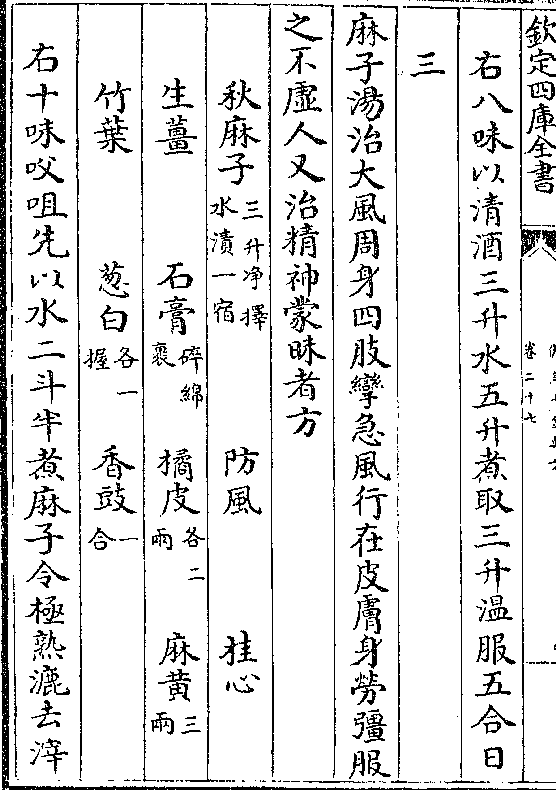 欽定四庫全書
卷二十七
右八味以清酒三升水五升煮取三升温服五合日
三
麻子湯治大風周身四肢攣急風行在皮膚身勞彊服
之不虛人又治精神蒙昧者方
秋麻子三升净擇水漬一宿 防風 桂心
生薑 石膏碎綿裹 橘皮各二兩 麻黄三兩
竹葉 葱白各一握 香豉一合
右十味㕮咀先以水二斗半煮麻子令極熟漉去滓